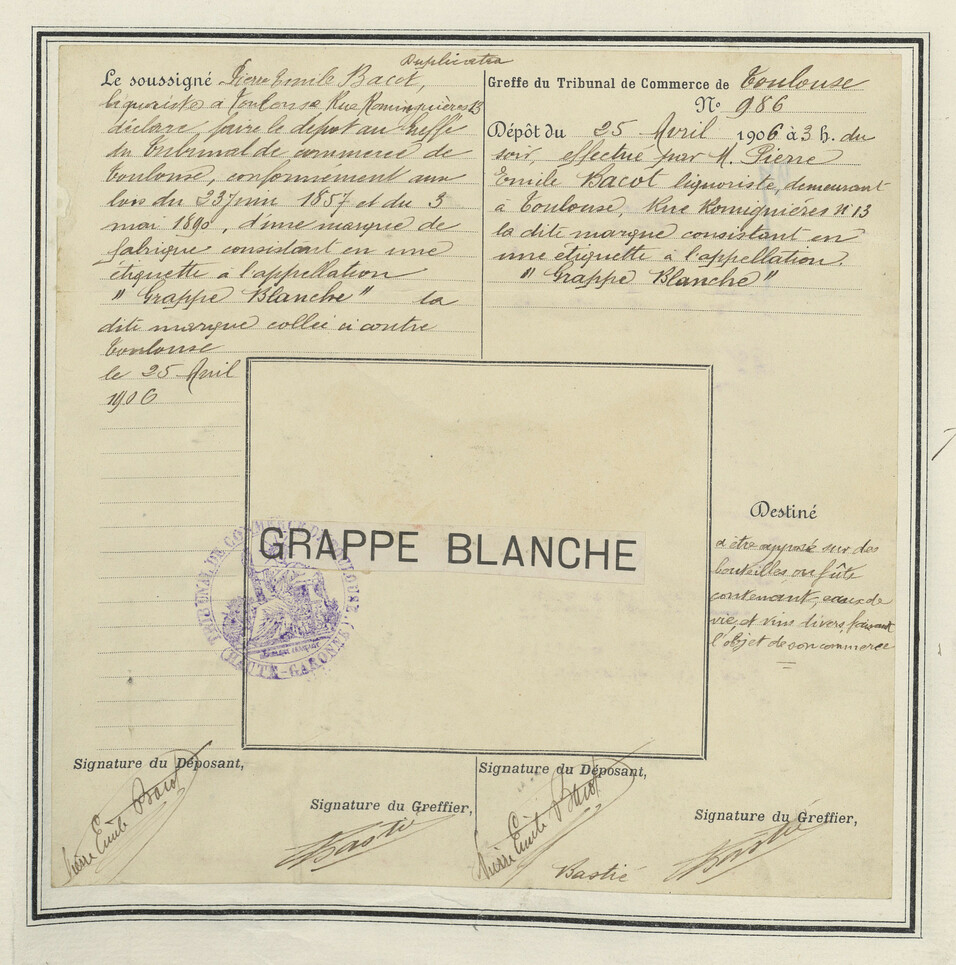 Duplicata
Le soussigné Pierre Emile Bacot,
liquoriste à Toulouse Rue Romiguières 13
déclare, faire le dépot au Greffe
du Tribunal de commerce de
Toulouse, conformément aux
lois du 23 juin 1857 et du 3
mai 1890, d'une marque de
fabrique consistant en une
étiquette à l'appellation
" Grappe Blanche " la
dite marque collée ci contre
Toulouse
le 25 Avril
1906
Greffe du Tribunal de Commerce de Toulouse
N° 986
Dépôt du 25 Avril 1906 à 3 h. du
soir, effectué par M. Pierre
Emile Bacot liquoriste, demeurant
à Toulouse, Rue Romiguières N° 13
la dite marque consistant en
une étiquette à l'appellation.
" Grappe Blanche "
GRAPPE BLANCHE
TRIBUNAL DE COMMERCE DE TOULOUSE
(HAUTE-GARONNE)
Destiné
a être apposé sur des
bouteilles, ou fûts
contenant, eaux de
vie, et vins divers, faisant
l'objet de son commerce
Signature du Déposant,
Pierre Emile Bacot
Signature du Greffier,
Bastié
Signature du Déposant,
Pierre Emile Bacot
Bastié
Signature du Greffier,
Bastié